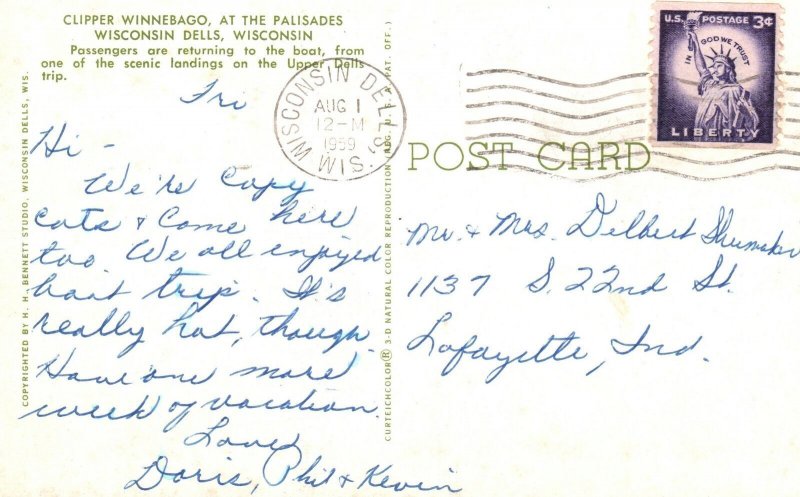 CLIPPER WINNEBAGO, AT THE PALISADES
WISCONSIN DELLS, WISCONSIN
Passengers are returning to the boat, from
one of the scenic landings on the Upper Dells
trip.
Fri
Hi -
We're Copy
cats & Come here
too. We all enjoyed
boat trip. It's
really hot, though.
Have one more
week of vacation.
Love
Doris, Phil & Kevin
COPYRIGHTED BY H. H. BENNETT STUDIO, WISCONSIN DELLS, WIS.
CURTEICHCOLOR® 3-D NATURAL COLOR REPRODUCTION (REG. U. S. A. PAT. OFF.)
WISCONSIN DELLS, WIS.
AUG 1
12-M
1959
POST CARD
U.S. POSTAGE 3¢
IN GOD WE TRUST
LIBERTY
Mr. & Mrs. Delbert Shumaker
1137 S. 22nd St.
Lafayette, Ind.